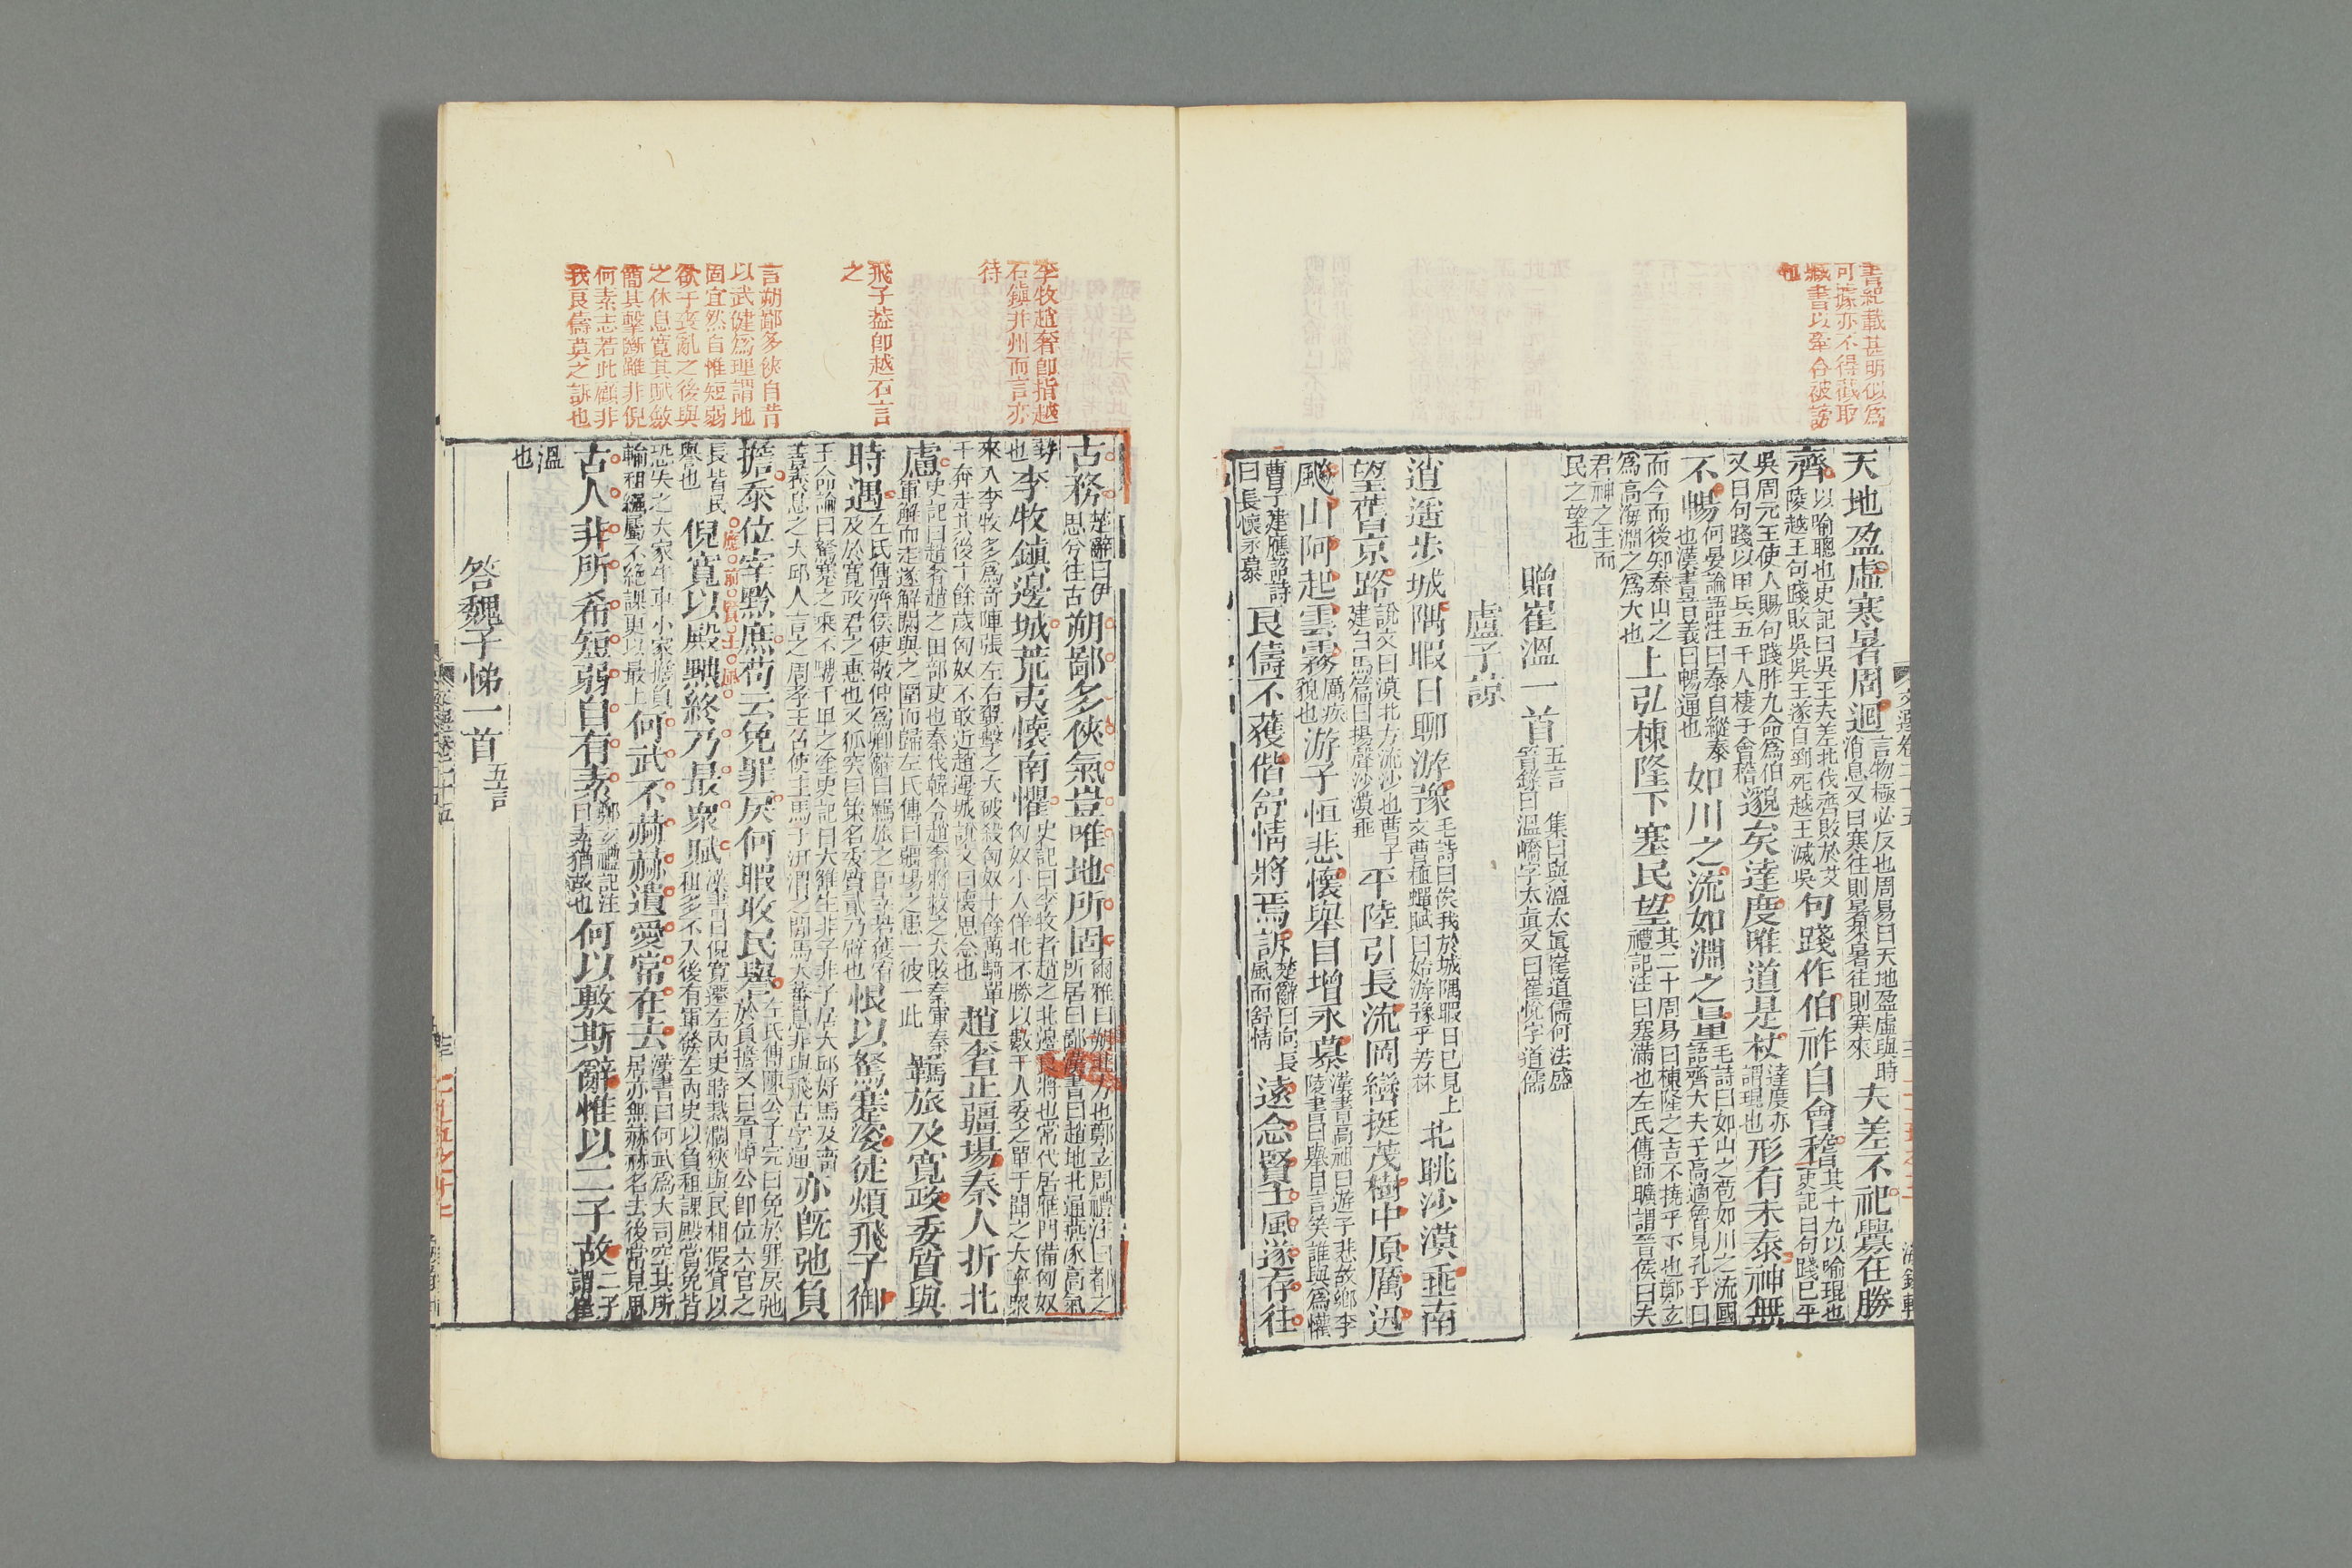 書紀載甚明似爲
可據亦不得截取
書以牽合被謗
也
文選卷二十五 三 海錄軒
天地盈虛寒暑周迴言物極必反也周易曰天地盈虛與時消息又曰寒往則暑來暑往則寒來夫差不祀釁在勝
齊以喻聰也史記曰吳王夫差北伐齊敗於艾陵越王句踐敗吳吳王遂自剄死越王滅吳句踐作伯祚自會稽其十九以喻琨也史記曰句踐已平
吳周元王使人賜句踐胙九命爲伯又曰句踐以甲兵五千人棲于會稽邈矣達度唯道是杖達度亦謂琨也形有未泰神無
不暢何晏論語注曰泰自縱泰也漢書音義曰暢通也如川之流如淵之量毛詩曰如山之苞如川之流國語齊大夫子高適魯見孔子曰
而今而後知泰山之爲高海淵之爲大也上弘棟隆下塞民望其二十周易曰棟隆之吉不撓乎下也鄭玄禮記注曰塞滿也左氏傳師曠謂晉侯曰夫
君神之主而民之望也
贈崔溫一首五言 集曰與溫太眞崔道儒何法盛晉錄曰溫嶠字太眞又曰崔悅字道儒
盧子諒
逍遥步城隅暇日聊游豫毛詩曰俟我於城隅暇日已見上文曹植蟬賦曰始游豫乎芳林北眺沙漠垂南
望舊京路說文曰漠北方流沙也曹子建白馬篇曰揚聲沙漠垂平陸引長流岡巒挺茂樹中原厲迅
飈山阿起雲霧厲疾貌也游子恒悲懷舉目增永慕漢書高祖曰游子悲故鄉李陵書曰舉目言笑誰與爲懽
曹子建應詔詩曰長懷永慕良儔不獲偕舒情將焉訴楚辭曰向長風而舒情遠念賢士風遂存往
李牧趙奢卽指越
石鎭并州而言亦
待
飛子葢卽越石言
之
言朔鄙多俠自昔
以武健爲理謂地
固宜然自惟短弱
欲于喪亂之後與
之休息寬其賦斂
簡其擊斷雖非倪
何素志若此顧非
我良儔莫之訴也
古務楚辭曰伊思兮往古朔鄙多俠氣豈唯地所固爾雅曰朔北方也鄭玄周禮注曰都之所居曰鄙漢書曰趙地北通燕涿高氣
勢也李牧鎭邊城荒夷懷南懼史記曰李牧者趙之北邊良將也常代居雁門備匈奴匈奴小入佯北不勝以數千人委之單于聞之大率衆
來入李牧多爲奇陣張左右翼擊之大破殺匈奴十餘萬騎單于奔走其後十餘歲匈奴不敢近趙邊城說文曰懷思念也趙奢正疆埸秦人折北
慮史記曰趙奢趙之田部吏也秦伐韓令趙奢將救之大敗秦軍秦軍解而走遂解閼與之圍而歸左氏傳曰疆埸之患一彼一此羈旅及寬政委質與
時遇左氏傳齊侯使敬仲爲卿辭曰羈旅之臣幸若獲宥及於寬政君之惠也又狐突曰策名委質貳乃辟也恨以駑蹇姿徒煩飛子御
王命論曰駑蹇之乘不騁千里之塗史記曰大雒生非子非子居犬邱好馬及畜善養息之犬邱人言之周孝王召使主馬于汧渭之閒馬大蕃息非與飛古字通亦旣弛負
擔忝位宰黔庶苟云免罪戾何暇收民譽左氏傳陳公子完曰免於罪戾弛於負擔又曰晉悼公卽位六官之
應前賢士風
長皆民譽也倪寬以殿黜終乃最衆賦漢書曰倪寬遷左內史時裁濶狹與民相假貸以租多不入後有軍發左內史以負租課殿當免皆
恐失之大家牛車小家擔負輸租繈屬不絶課更以最上何武不赫赫遺愛常在去漢書曰何武爲大司空其所居亦無赫赫名去後常見思
古人非所希短弱自有素鄭玄禮記注曰素猶故也何以敷斯辭惟以二子故二子謂崔
溫也
答魏子悌一首五言